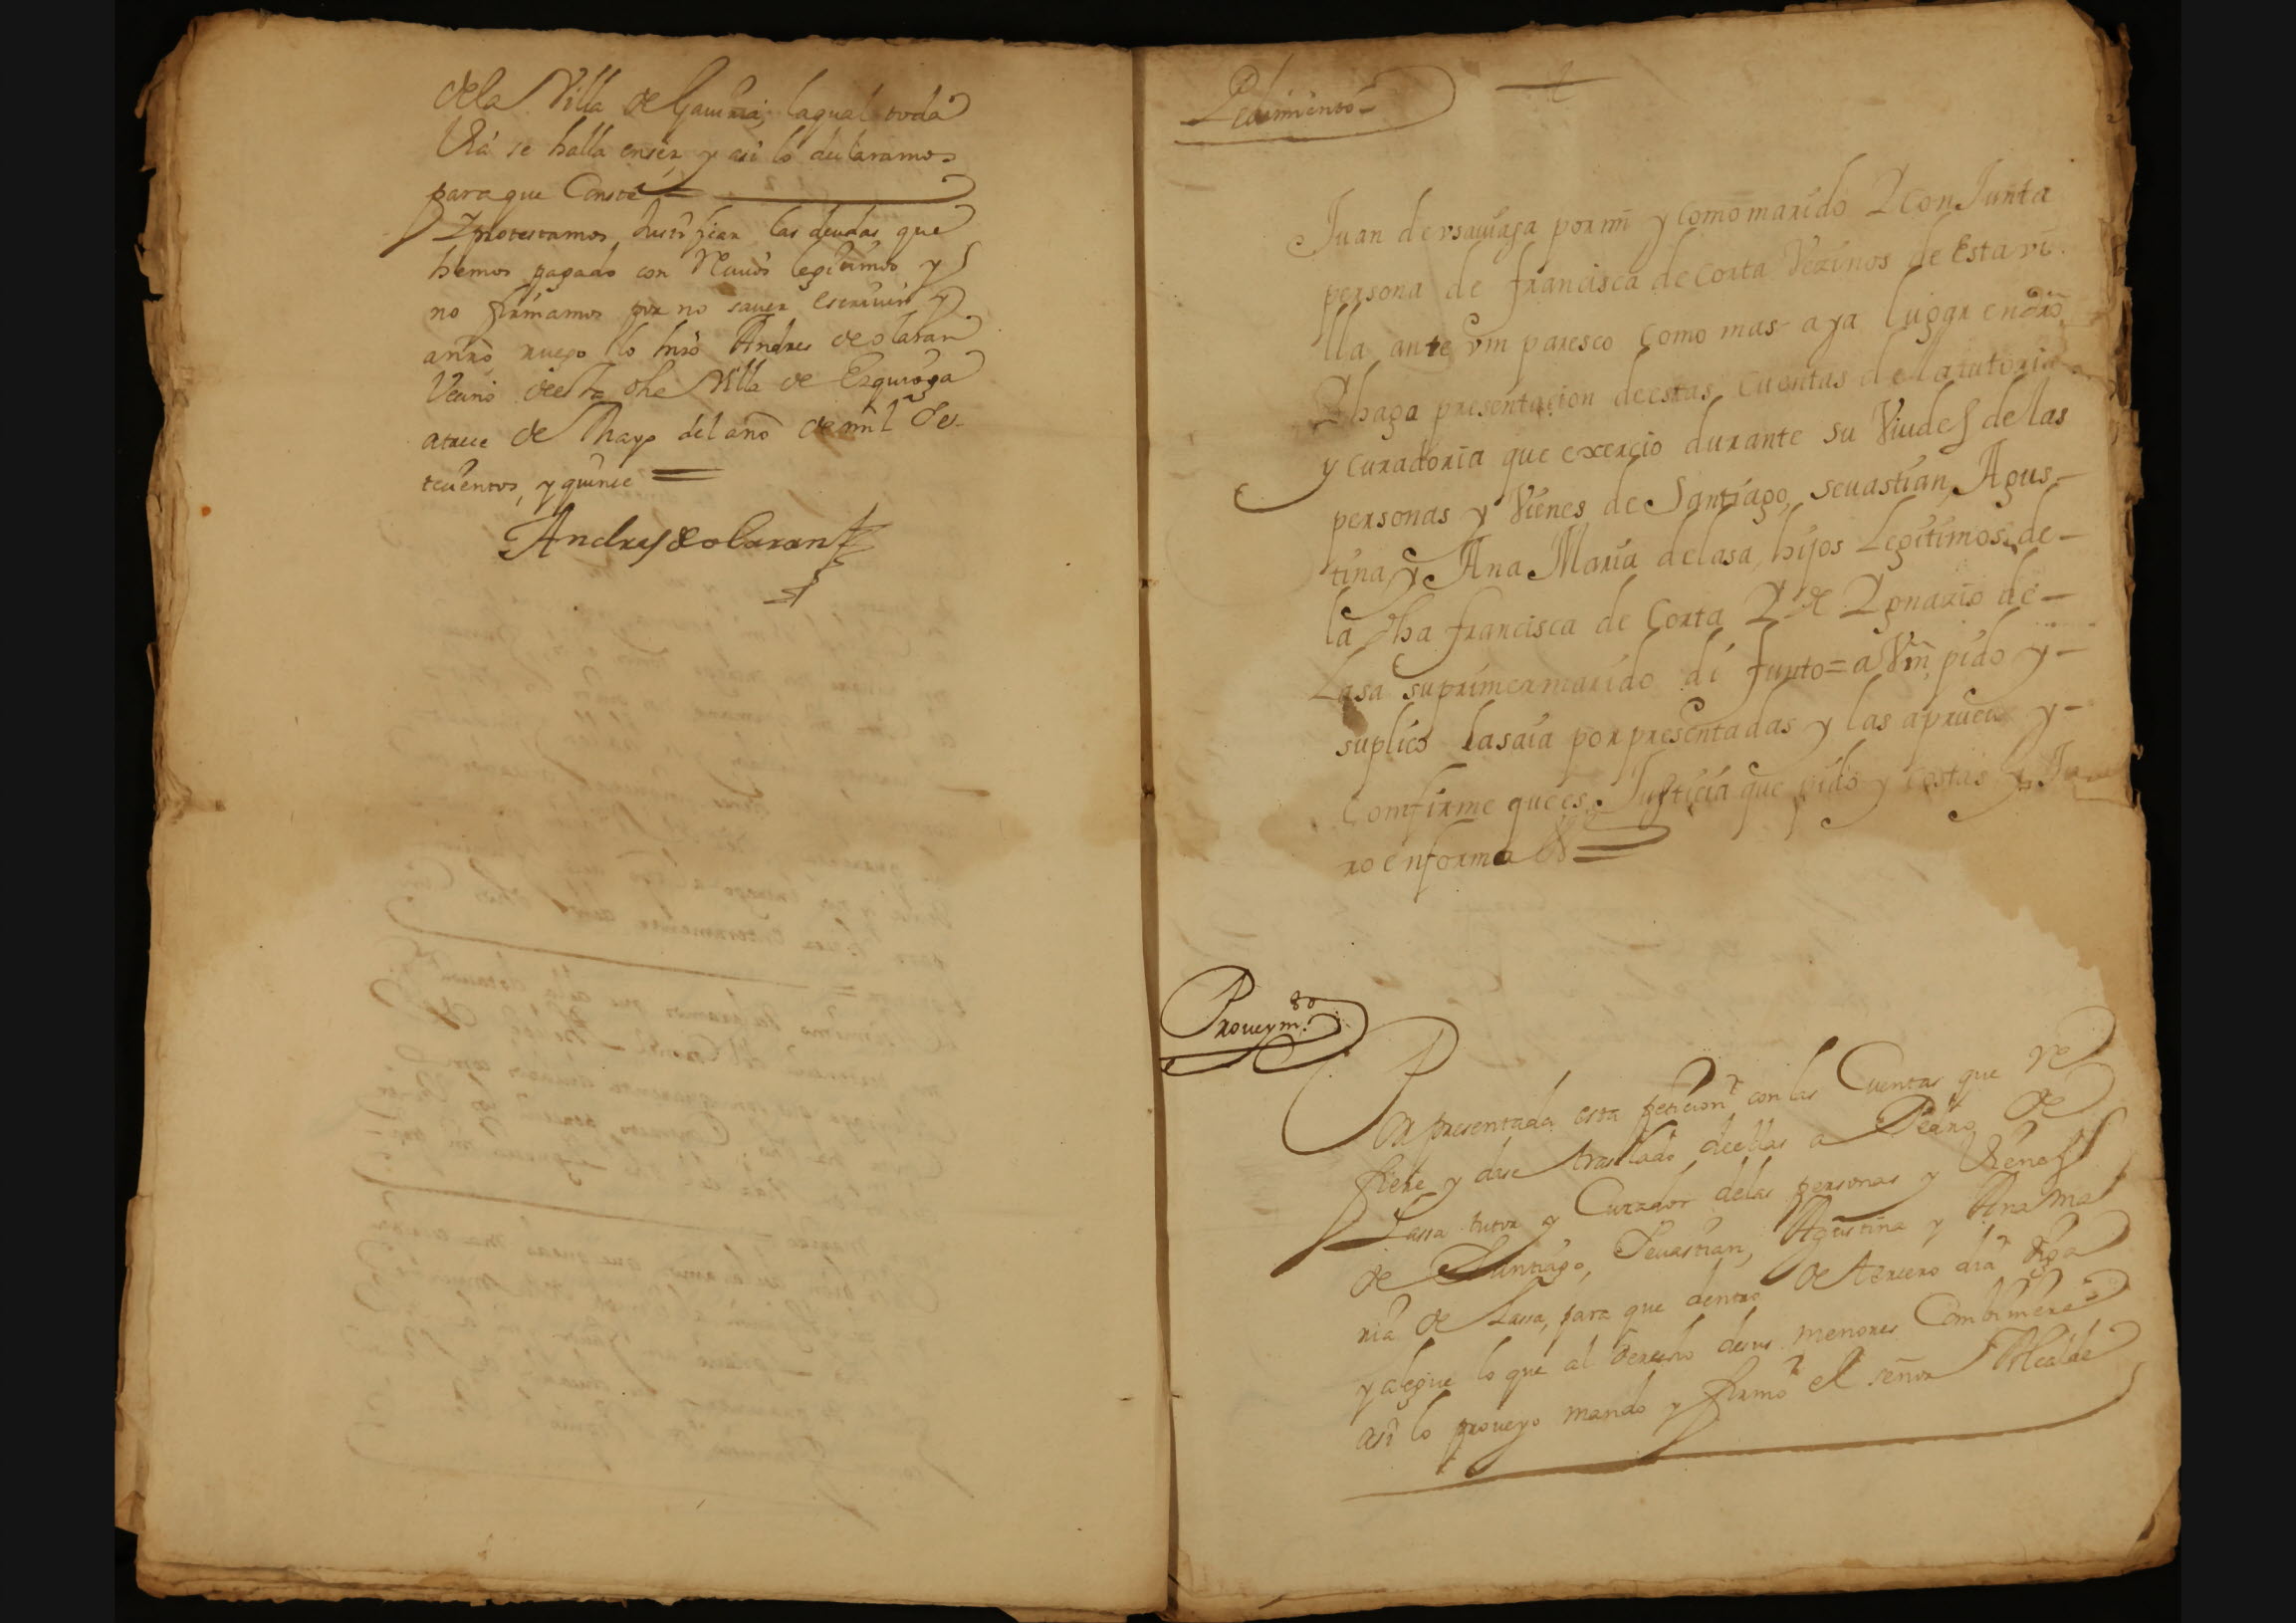 dela Villa de Gauiria, laqual toda
Via se halla enser, y asi lo declaramos
para que Conste =
Y protestamos Justificar las deudas que
hemos pagado con Reciuos legitimos y
no firmamos por no sauer escriuir y
a nrõ ruego lo hizo Andres de olaran
Vecino deesta dha Villa de Ezquioga
a trece de Mayo del año de mil Se-
tecientos, y quince =
Andres de olaran
Pedimiento
Juan de vsauiaga por mi y como marido Y conJunta
persona de francisca de Corta Vezinos de Esta vi-
lla ante vm paresco como mas aya lugar en drõ
Y haga presentacion de estas Cuentas de la tutoria
y curadoria que exercio durante su Viudes de las
personas y Vienes de Santiago, Seuastian, Agus-
tina, y Ana Maria de lasa, hijos Legitimos de-
la dha francisca de Corta Y de Ygnazio de-
Lasa su primer marido difunto = a Vm pido y-
suplico las aia por presentadas y las aprueue y-
Comfirme que es Justicia que pido y costas y Ju
ro en forma &=
Proueymto
Por presentada esta peticion con las Cuentas que re
fiere y dase traslado deellas a Pedro de
Lassa tutor y Curador delas personas y Vienes
de Santiago, Seuastian, Agustina y Ana Ma
ria de Lassa, para que dentro de tercero dia diga
y alegue lo que al derecho desus menores Combiniere =
asi lo proueyo mando y firmo el señor Alcalde